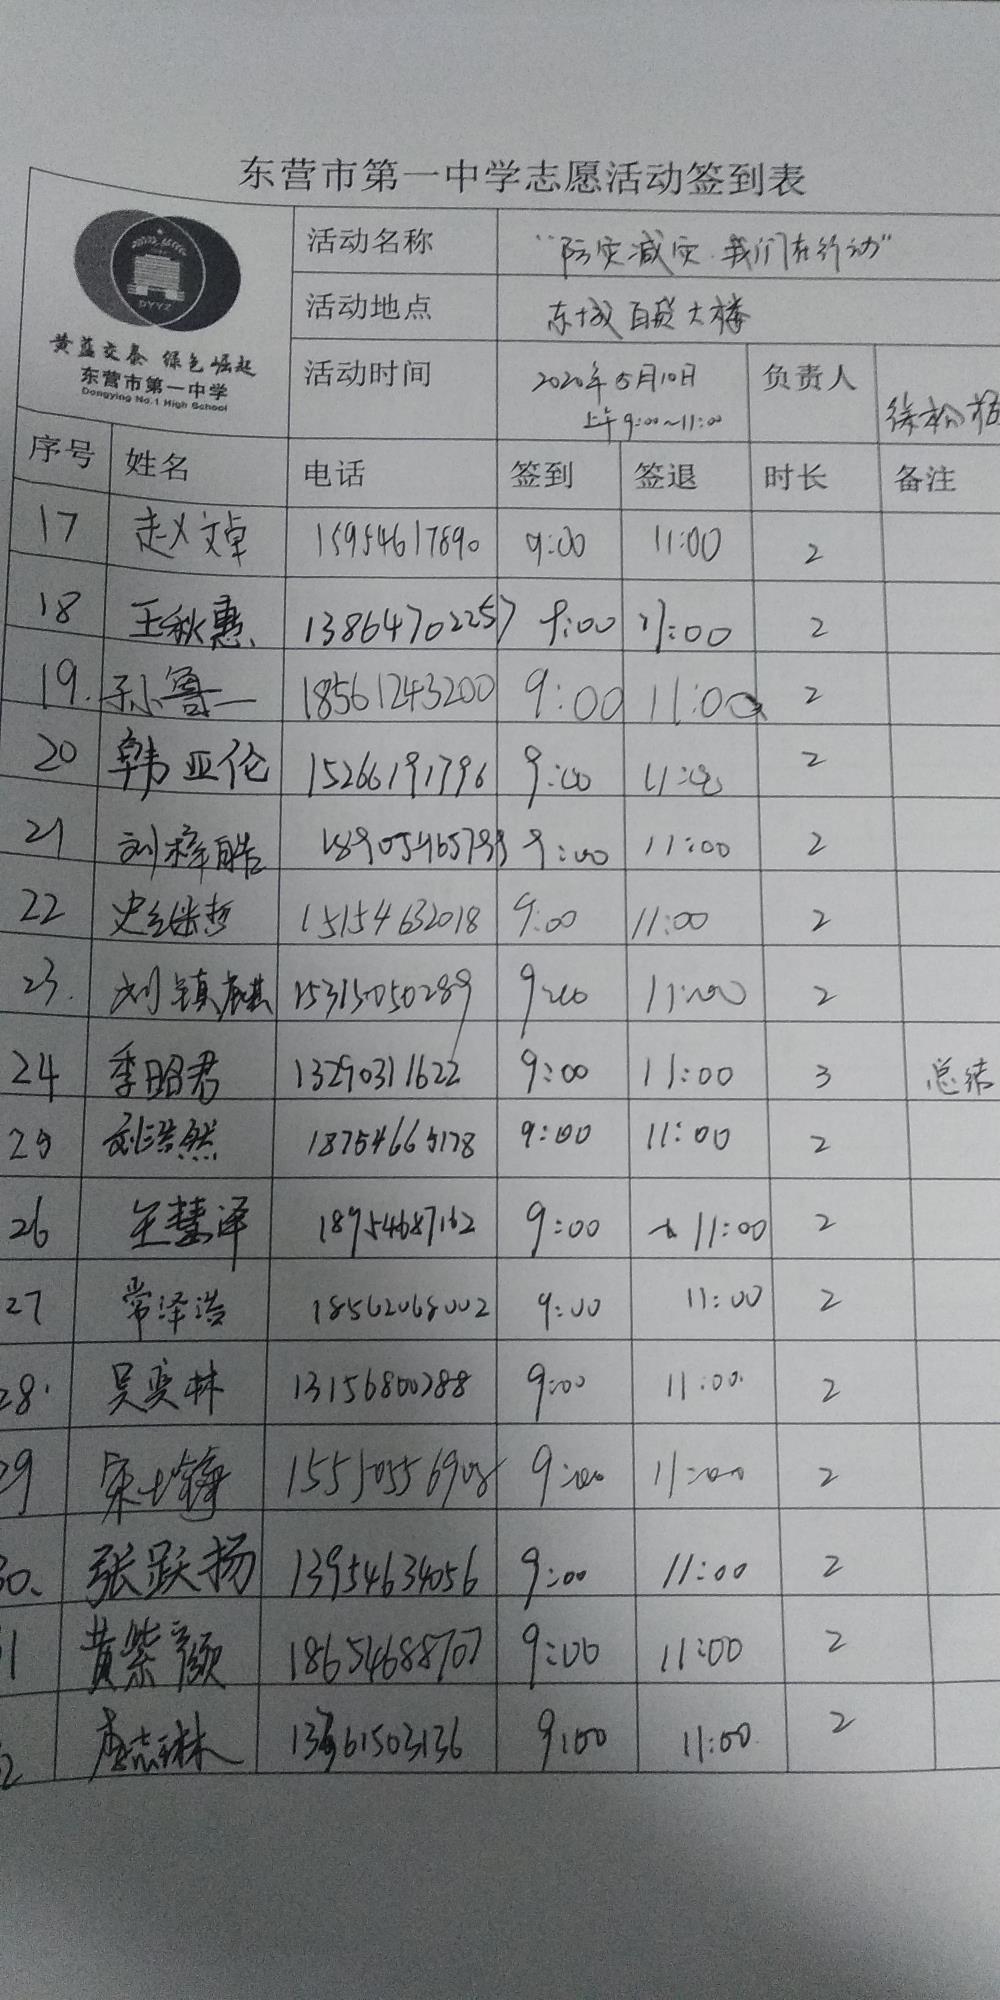 东营市第一中学志愿活动签到表
DYYZ
黄蓝交泰 绿色崛起
东营市第一中学
Dongying No.1 High School
活动名称 “防灾减灾 我们在行动”
活动地点 东城百货大楼
活动时间 2020年5月10日
上午9:00~11:00
负责人 徐松
序号 姓名 电话 签到 签退 时长 备注
17 赵文卓 15954617890 9:00 11:00 2
18 王秋惠 13864702257 9:00 11:00 2
19. 孙鲁一 18561243200 9:00 11:00 2
20 韩亚伦 15266191796 9:00 11:00 2
21 刘梓皓 18905465799 9:00 11:00 2
22 史继哲 15154632018 9:00 11:00 2
23. 刘镇麒 15315050289 9:00 11:00 2
24 季昭君 13290311622 9:00 11:00 3 总结
25 刘浩然 18754665178 9:00 11:00 2
26 王慧泽 18954687162 9:00 11:00 2
27 常泽浩 18562068002 9:00 11:00 2
28. 吴奕林 13156800288 9:00 11:00 2
29 宋 15550556908 9:00 11:00 2
30. 张跃扬 13954634056 9:00 11:00 2
1 黄紫颜 18654688707 9:00 11:00 2
2 李志琳 13361503136 9:00 11:00 2